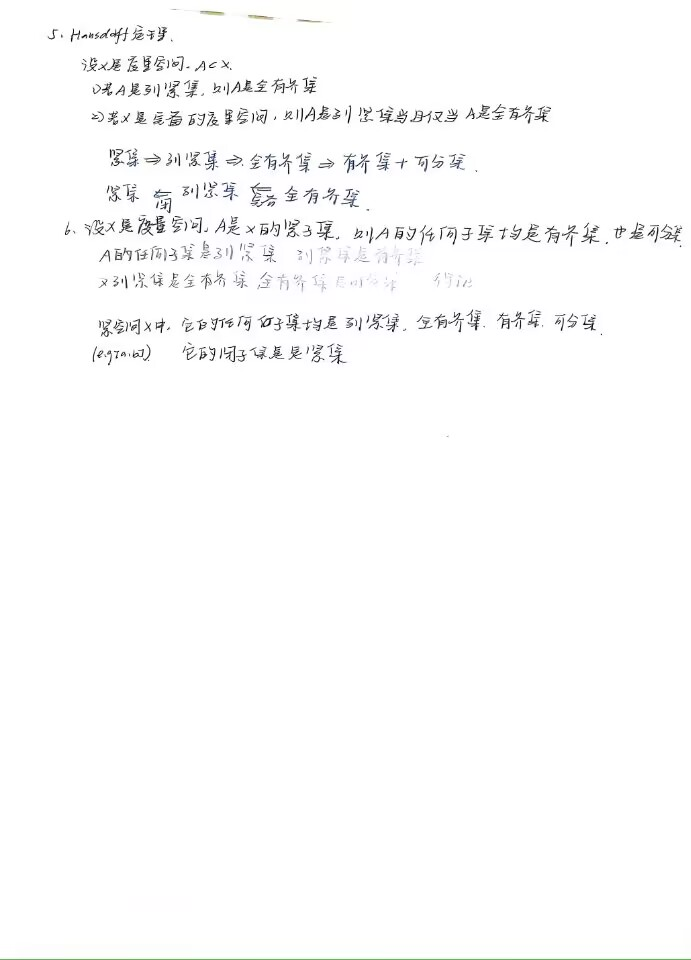 5. Hausdoff定理.
设X是度量空间. A⊂X.
1) 若A是列紧集, 则A是全有界集
2) 若X是完备的度量空间, 则A是列紧集当且仅当 A是全有界集
紧集 ⇒ 列紧集 ⇒ 全有界集 ⇒ 有界集 + 可分集.
紧集 ⇐闭 列紧集 ⇐完备 全有界集.
6. 设X是度量空间, A是X的紧子集, 则A的任何子集均是有界集, 也是可分集
A的任何子集是列紧集 列紧集是有界集
又列紧集是全有界集 全有界集是可分集 得证
紧空间X中, 它的任何子集均是列紧集, 全有界集. 有界集. 可分集.
它的闭子集是紧集